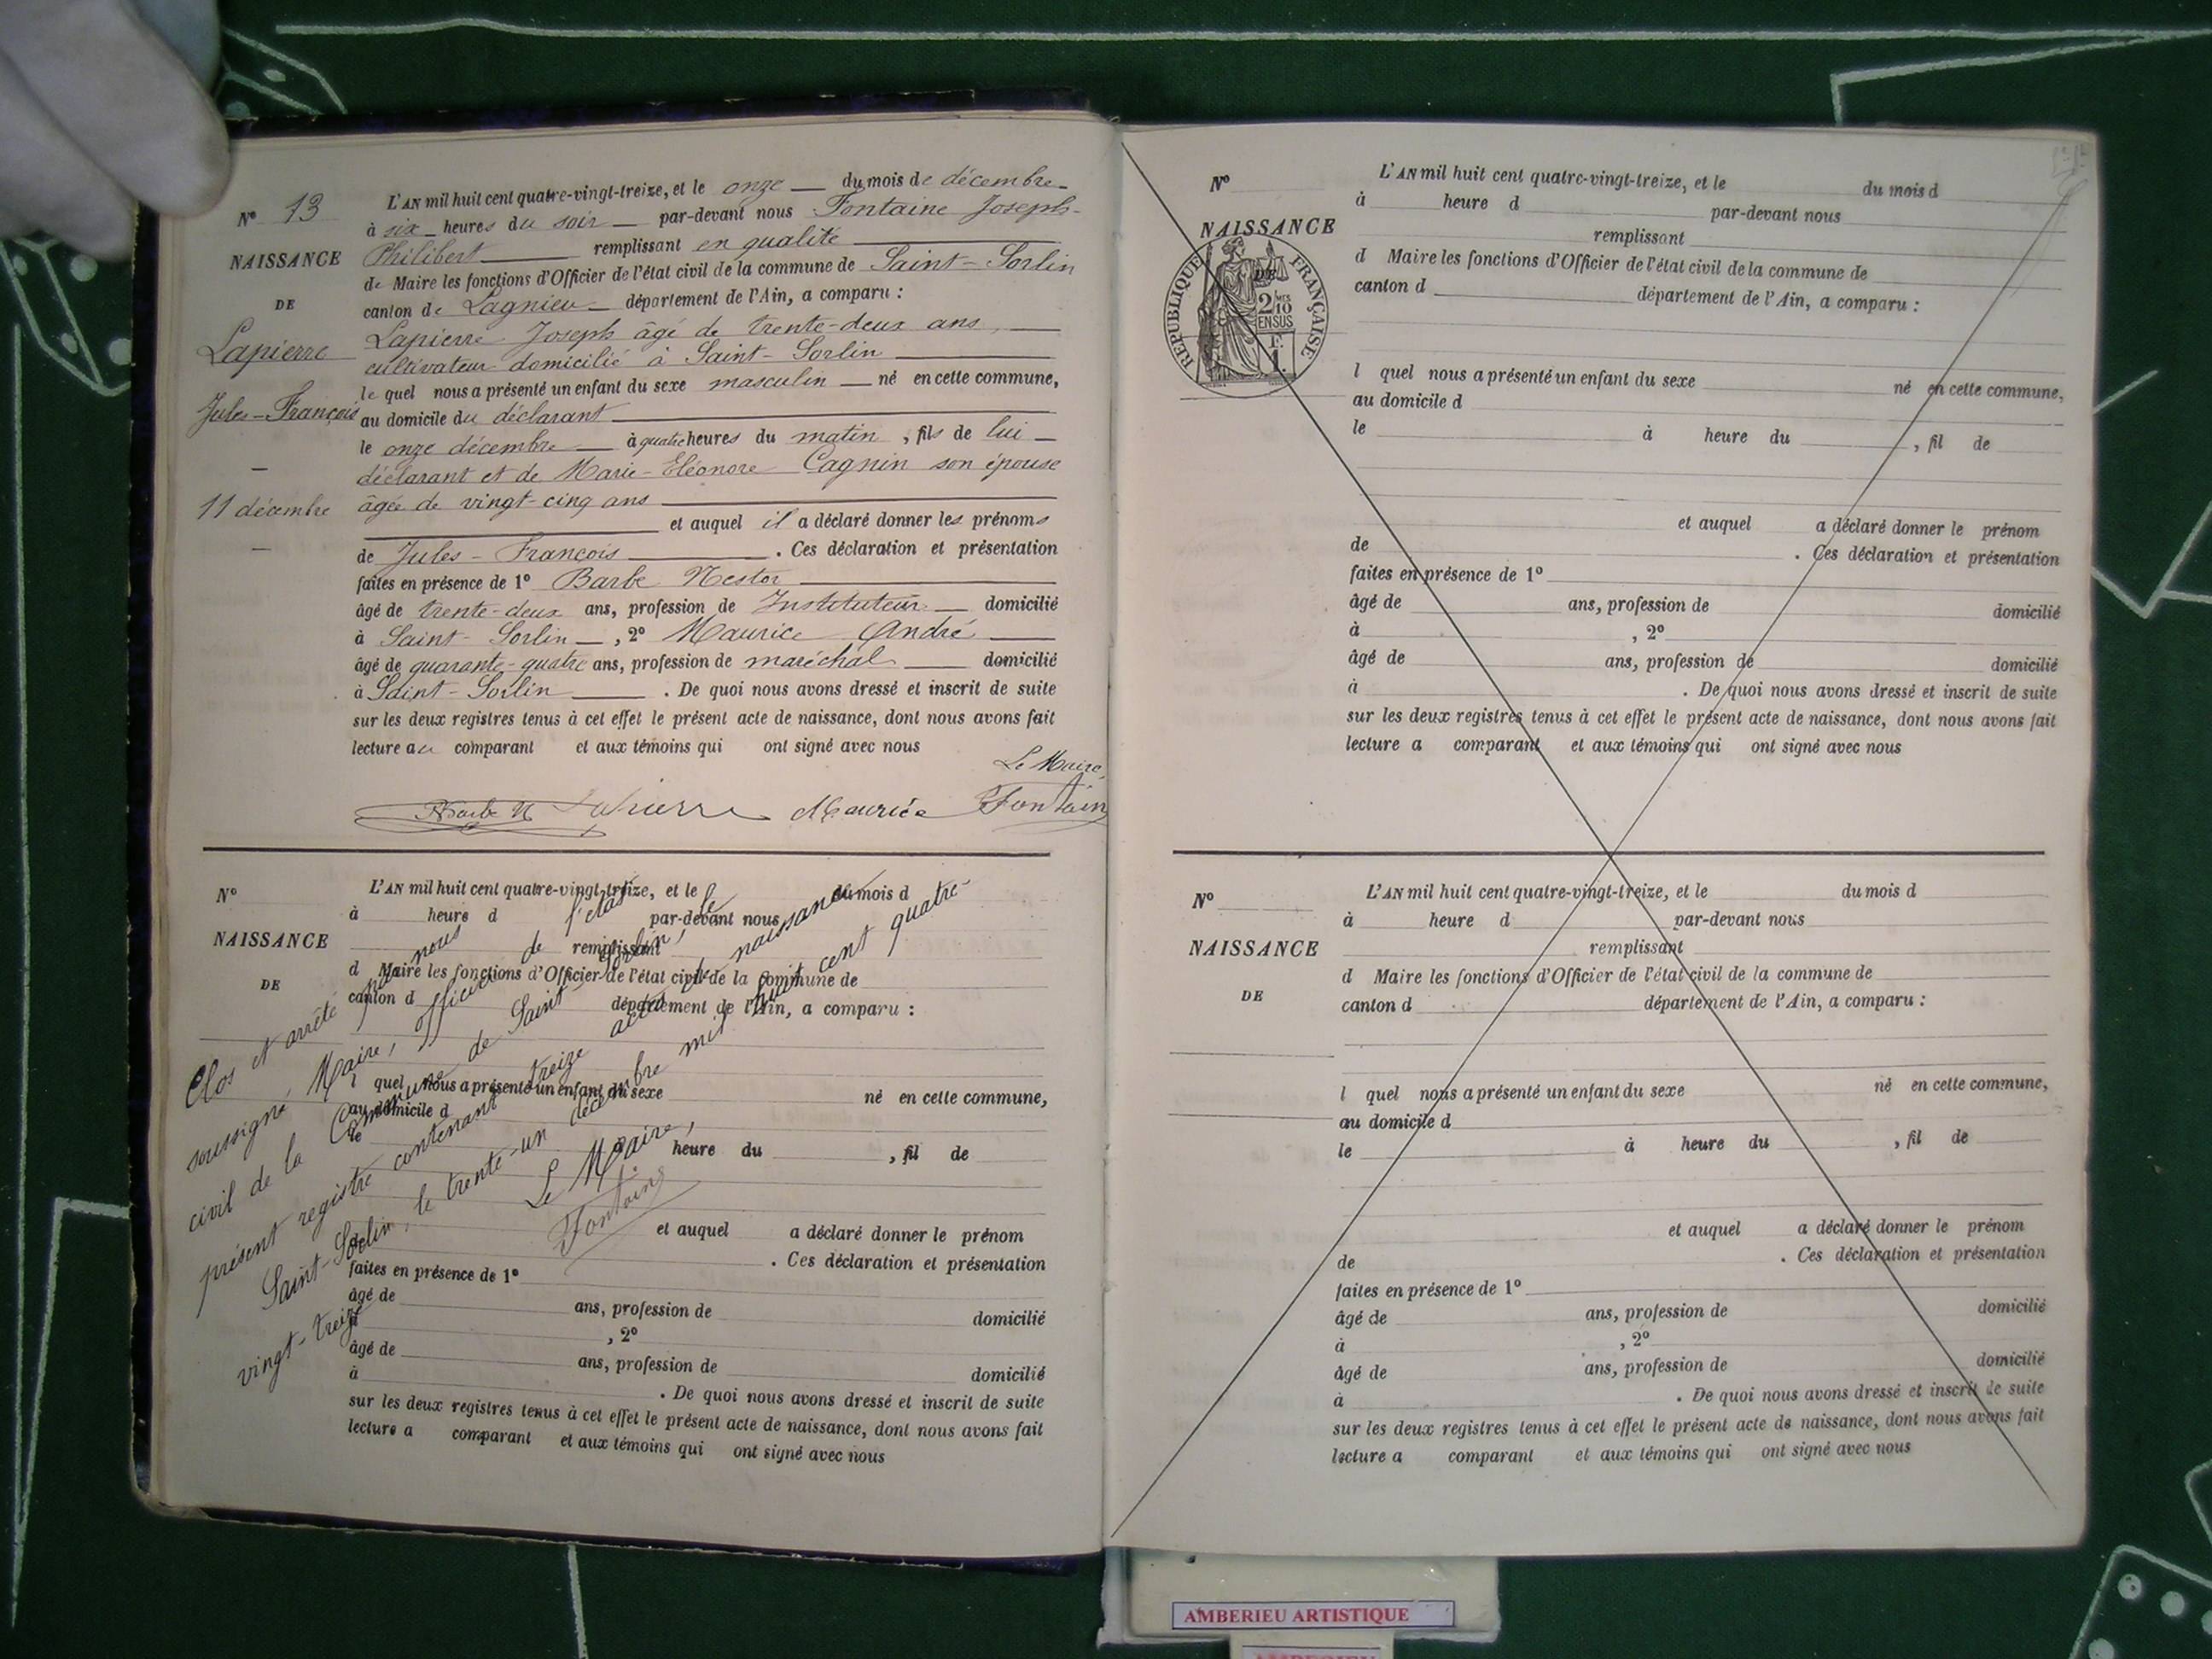 N° 13
NAISSANCE
DE
Lapierre
Jules-François
11 décembre
L'AN mil huit cent quatre-vingt-treize, et le onze du mois de décembre
à six heures du soir par-devant nous Fontaine Joseph-
Philibert remplissant en qualité
de Maire les fonctions d'Officier de l'état civil de la commune de Saint-Sorlin
canton de Lagnieu département de l'Ain, a comparu :
Lapierre Joseph âgé de trente-deux ans,
cultivateur domicilié à Saint-Sorlin
le quel nous a présenté un enfant du sexe masculin né en cette commune,
au domicile du déclarant
le onze décembre à quatre heures du matin, fils de lui
déclarant et de Marie-Eléonore Cagnin son épouse
âgée de vingt-cinq ans
et auquel il a déclaré donner les prénoms
de Jules-François. Ces déclaration et présentation
faites en présence de 1° Barbe Nestor
âgé de trente-deux ans, profession de Instituteur domicilié
à Saint-Sorlin, 2° Maurice André
âgé de quarante-quatre ans, profession de maréchal domicilié
à Saint-Sorlin. De quoi nous avons dressé et inscrit de suite
sur les deux registres tenus à cet effet le présent acte de naissance, dont nous avons fait
lecture au comparant et aux témoins qui ont signé avec nous
Le Maire,
Barbe N Lapierre Maurice Fontain
N°
NAISSANCE
DE
L'AN mil huit cent quatre-vingt-treize, et le du mois d
à heure d par-devant nous
remplissant
d Maire les fonctions d'Officier de l'état civil de la commune de
canton d département de l'Ain, a comparu :
l quel nous a présenté un enfant du sexe né en cette commune,
au domicile d
le à heure du , fil de
et auquel a déclaré donner le prénom
de . Ces déclaration et présentation
faites en présence de 1°
âgé de ans, profession de domicilié
à , 2°
âgé de ans, profession de domicilié
à . De quoi nous avons dressé et inscrit de suite
sur les deux registres tenus à cet effet le présent acte de naissance, dont nous avons fait
lecture a comparant et aux témoins qui ont signé avec nous
Clos et arrêté par nous
soussigné Maire, officier de l'état
civil de la Commune de Saint-Sorlin, le
présent registre contenant treize actes de naissance
Saint-Sorlin, le trente-un décembre mil huit cent quatre
vingt-treize
Le Maire,
Fontain
N°
NAISSANCE
DE
REPUBLIQUE FRANÇAISE
2/10 EN SUS
1.
L'AN mil huit cent quatre-vingt-treize, et le du mois d
à heure d par-devant nous
remplissant
d Maire les fonctions d'Officier de l'état civil de la commune de
canton d département de l'Ain, a comparu :
l quel nous a présenté un enfant du sexe né en cette commune,
au domicile d
le à heure du , fil de
et auquel a déclaré donner le prénom
de . Ces déclaration et présentation
faites en présence de 1°
âgé de ans, profession de domicilié
à , 2°
âgé de ans, profession de domicilié
à . De quoi nous avons dressé et inscrit de suite
sur les deux registres tenus à cet effet le présent acte de naissance, dont nous avons fait
lecture a comparant et aux témoins qui ont signé avec nous
N°
NAISSANCE
DE
L'AN mil huit cent quatre-vingt-treize, et le du mois d
à heure d par-devant nous
remplissant
d Maire les fonctions d'Officier de l'état civil de la commune de
canton d département de l'Ain, a comparu :
l quel nous a présenté un enfant du sexe né en cette commune,
au domicile d
le à heure du , fil de
et auquel a déclaré donner le prénom
de . Ces déclaration et présentation
faites en présence de 1°
âgé de ans, profession de domicilié
à , 2°
âgé de ans, profession de domicilié
à . De quoi nous avons dressé et inscrit de suite
sur les deux registres tenus à cet effet le présent acte de naissance, dont nous avons fait
lecture a comparant et aux témoins qui ont signé avec nous
AMBERIEU ARTISTIQUE